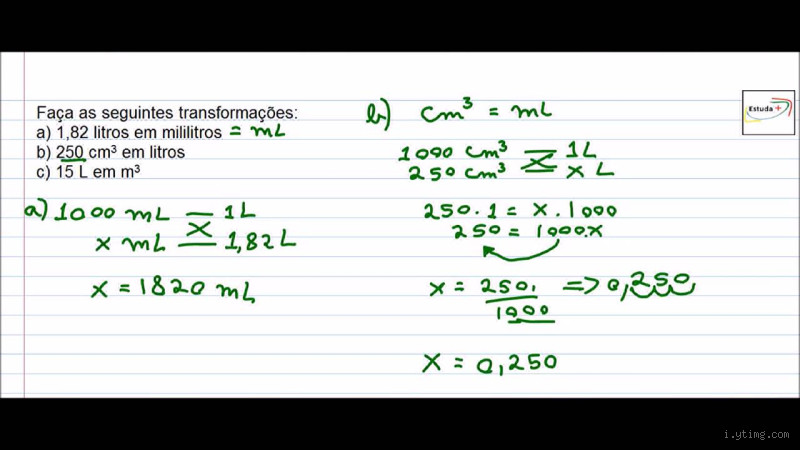 Faça as seguintes transformações:
a) 1,82 litros em mililitros = mL
b) 250 cm³ em litros
c) 15 L em m³
a) 1000 mL 1L
x mL 1,82L
x = 1820 mL
b) cm³ = mL
1000 cm³ 1L
250 cm³ x L
250 . 1 = x . 1000
250 = 1000.x
x = 250, => 0,250
1000
x = 0,250
Estuda +
i.ytimg.com